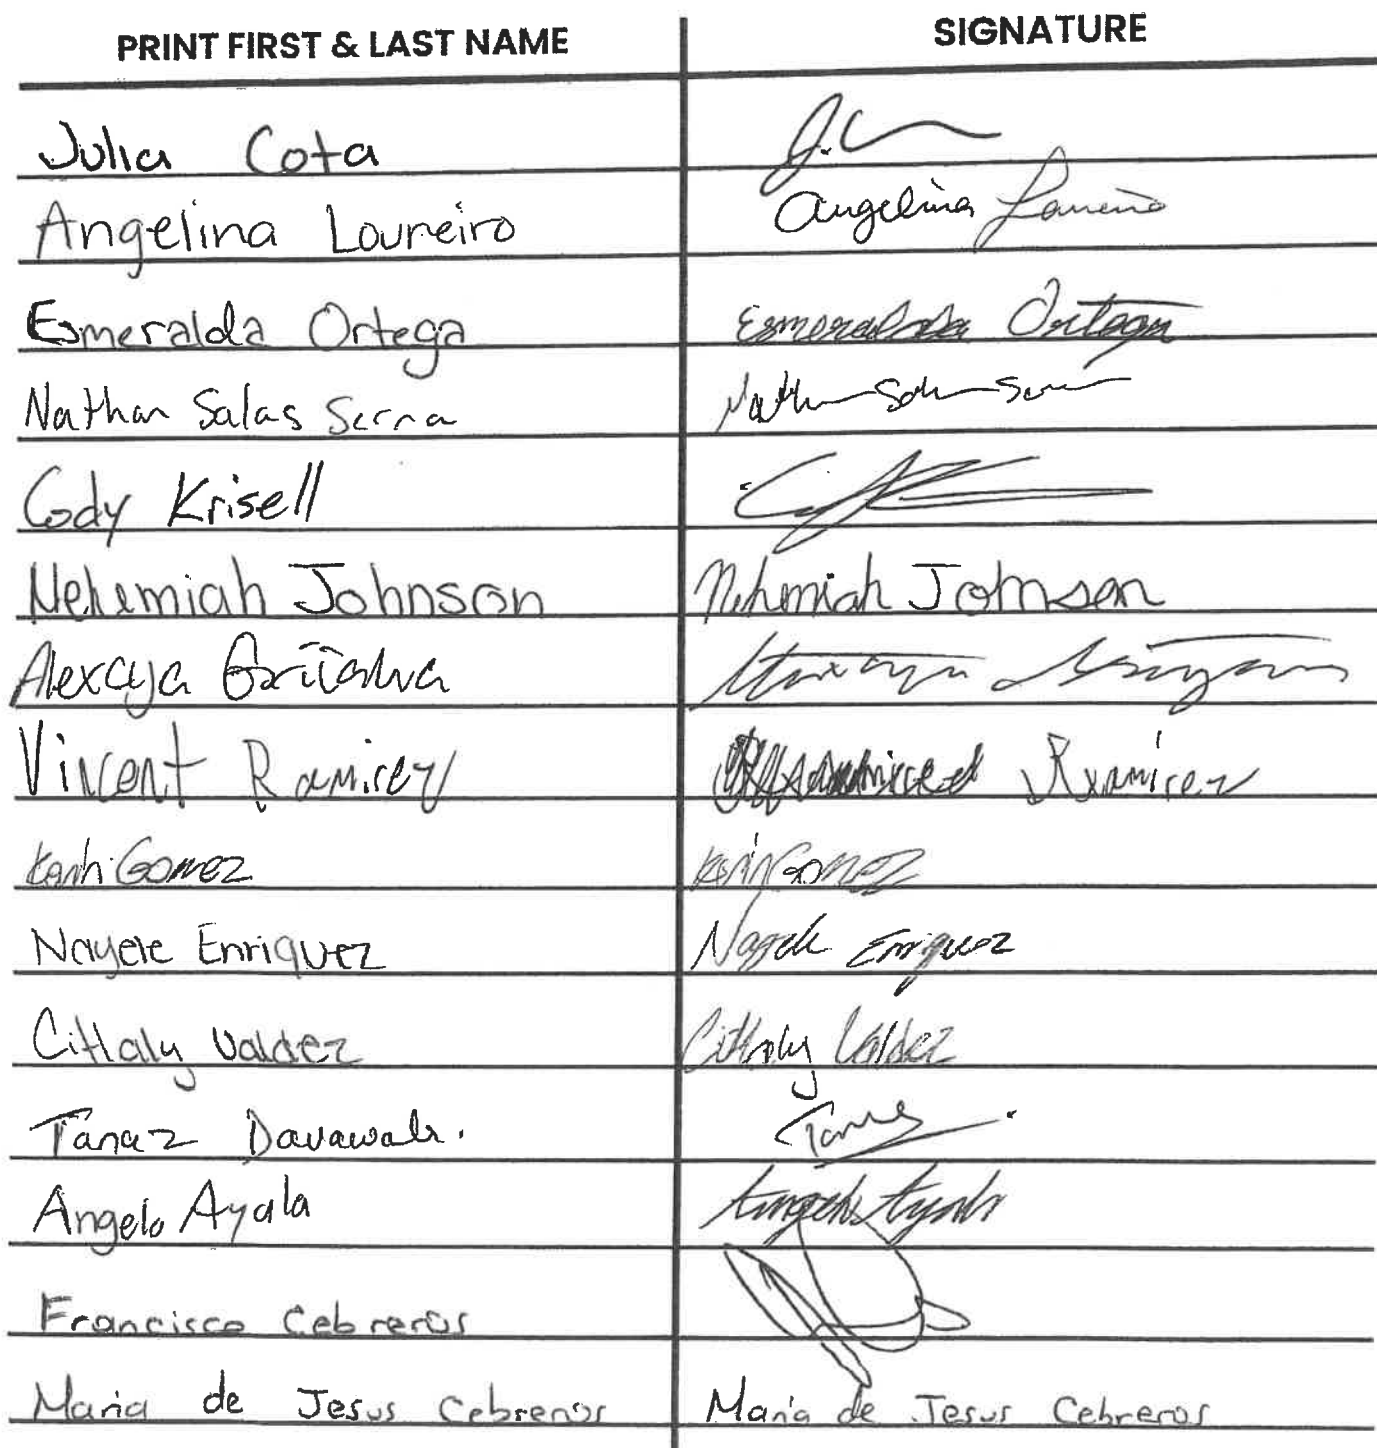 PRINT FIRST & LAST NAME SIGNATURE
Julia Cota J.C
Angelina Loureiro Angelina Loureiro
Esmeralda Ortega Esmeralda Ortega
Nathan Salas Serna
Cody Krisell
Nehemiah Johnson Nehemiah Johnson
Alexaya Grijalva
Vincent Ramirez Ramirez
Gomez Gomez
Nayele Enriquez Nayele Enriquez
Citlaly Valdez Citlaly Valdez
Tanaz Davawala. Tanaz
Angelo Ayala Angelo Ayala
Francisco Cebreros
Maria de Jesus Cebreros Maria de Jesus Cebreros